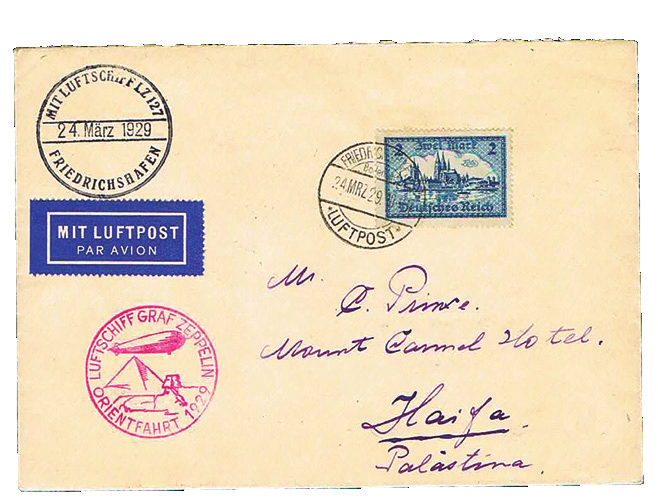 MIT LUFTSCHIFF LZ 127
24. März 1929
FRIEDRICHSHAFEN
MIT LUFTPOST
PAR AVION
LUFTSCHIFF GRAF ZEPPELIN
ORIENTFAHRT 1929
2 Zwei Mark 2
Deutsches Reich
24.MRZ.29.
*LUFTPOST*
Mr.
C. Prince.
Mount Carmel Hotel.
Haifa.
Palästina.